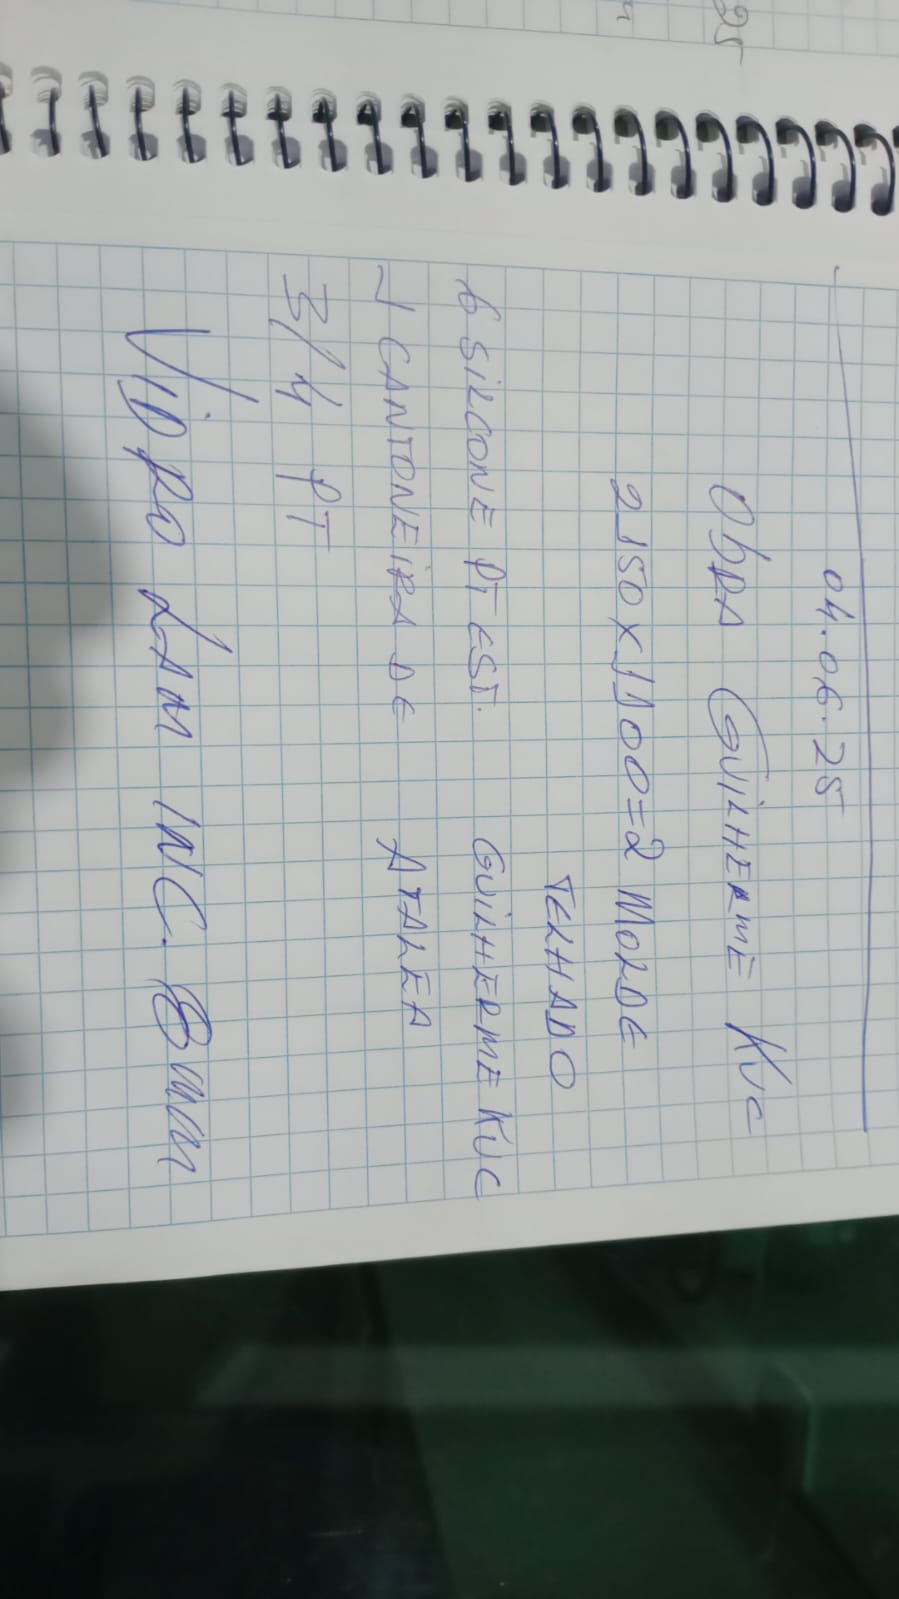 25
04.06.25
ObRA GUILHERME KUC
2150 x 1100 = 2 MOLDE
TELHADO
6 SILCONE PT EST. GUILHERME KUC
1 CANTONEIRA DE ATALEA
3/4 PT
VIDRO LAM INC. 8mm